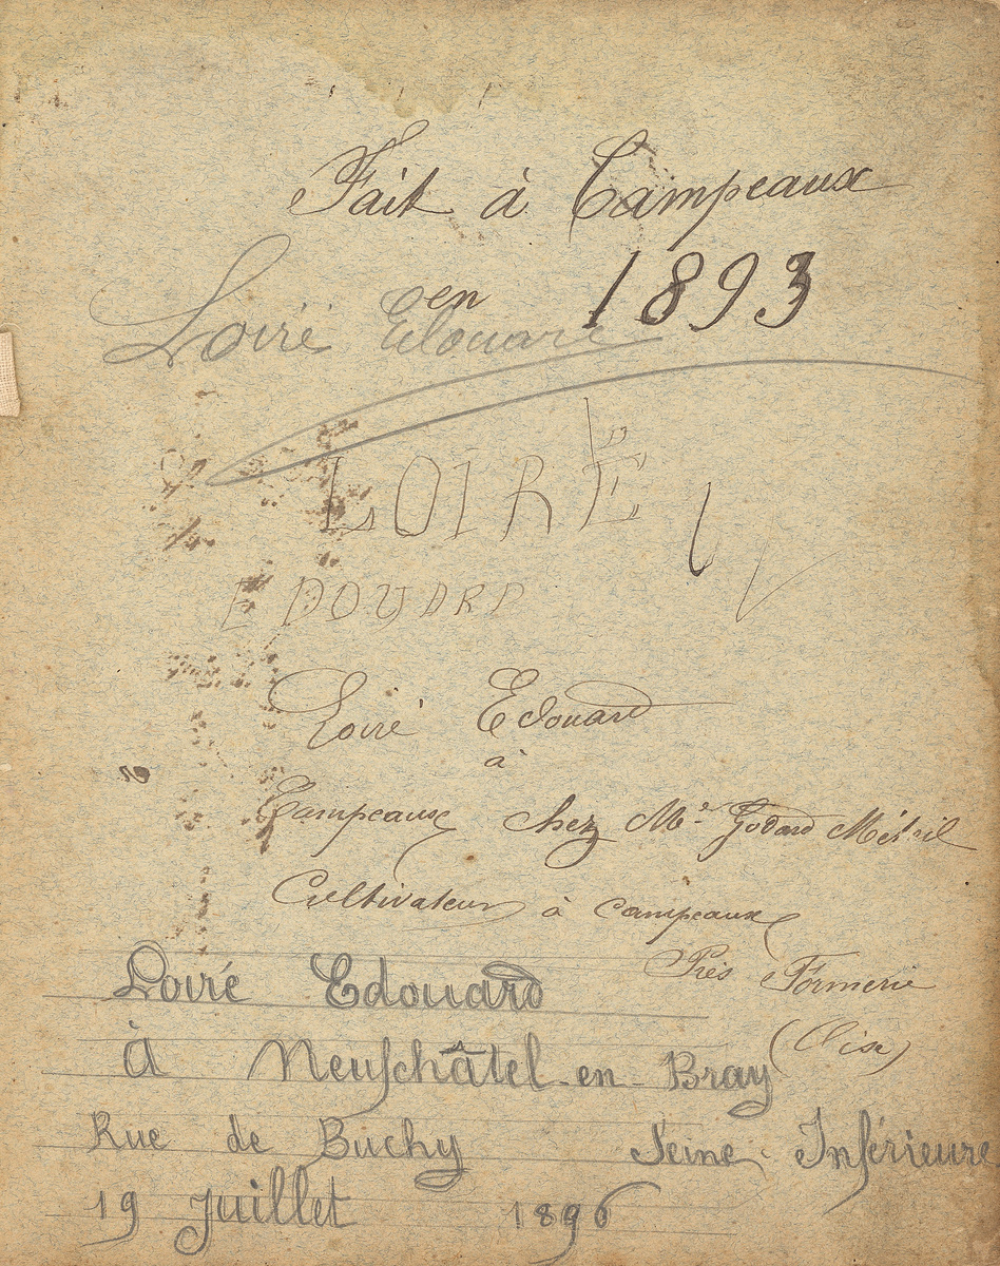 Fait à Campeaux
en 1893
Loiré Edouard
LOIRÉ
EDOUARD
Loiré Edouard
à
Campeaux chez Mr Godard Mesnil
Cultivateur à Campeaux
Près Formerie
(Oise)
Loiré Edouard
à Neufchâtel-en-Bray
Rue de Buchy Seine-Inférieure
19 Juillet 1896